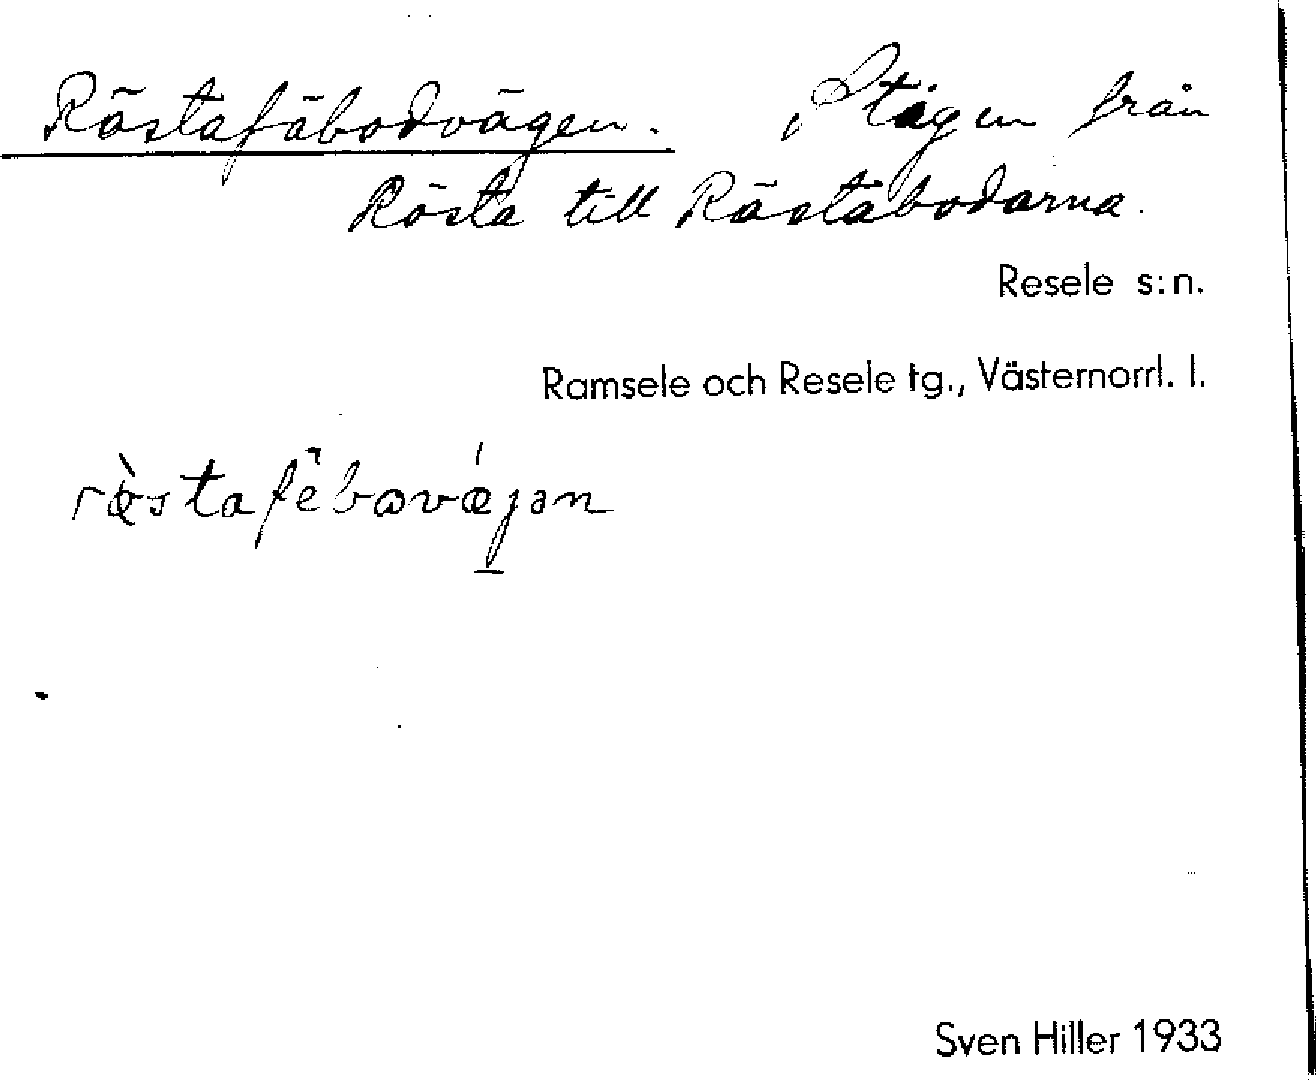 Röstafäbodvägen. Stigen från
Rösta till Röstabodarna.
Resele s:n.
Ramsele och Resele tg., Västernorrl. l.
Sven Hiller 1933